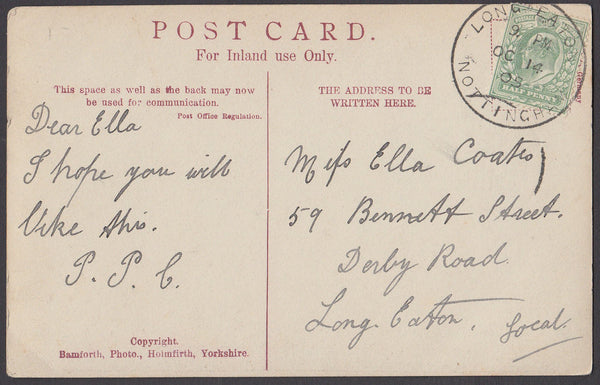 POST CARD.
For Inland use Only.
This space as well as the back may now
be used for communication.
Post Office Regulation.
THE ADDRESS TO BE
WRITTEN HERE.
LONG EATON
9 PM
OC 14
NOTTINGH
HALF PENNY
Dear Ella
I hope you will
like this.
P. P. C.
Miss Ella Coates
59 Bennett Street.
Derby Road.
Long Eaton.
Local.
Copyright.
Bamforth, Photo., Holmfirth, Yorkshire.